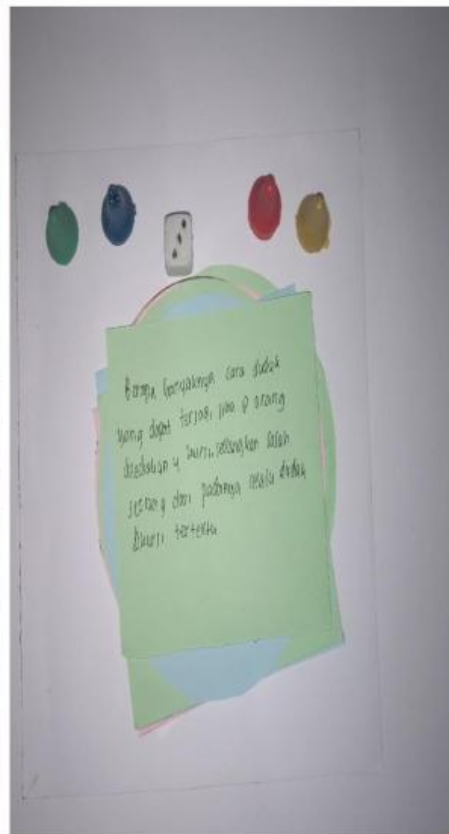 Berapa banyaknya cara duduk
yang dapat terjadi jika 8 orang
disediakan 4 kursi, sedangkan salah
seorang dari padanya selalu duduk
dikursi tertentu